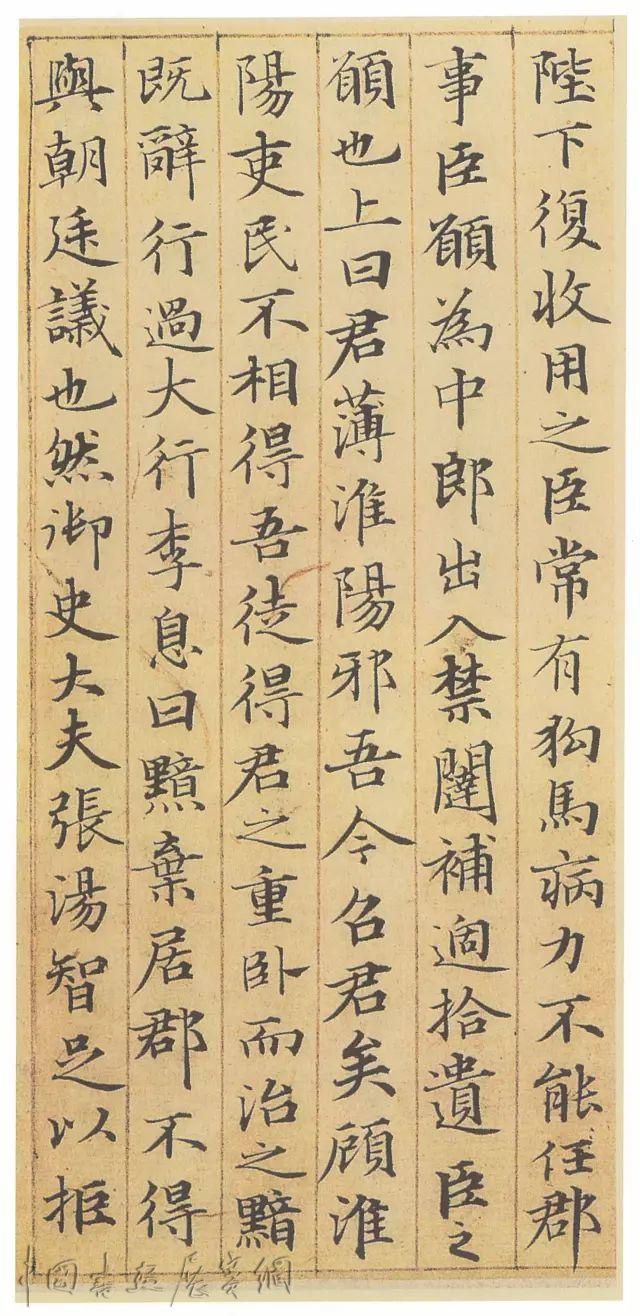 陛下復收用之臣常有狗馬病力不能任郡
事臣願為中郎出入禁闥補過拾遺臣之
願也上曰君薄淮陽邪吾今召君矣顧淮
陽吏民不相得吾徒得君之重臥而治之黯
既辭行過大行李息曰黯棄居郡不得
與朝廷議也然御史大夫張湯智足以拒
中國書法展賽網